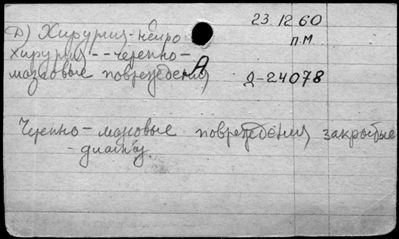 Д) Хирургия-нейро
хирургия--черепно-
мозговые повреждения
А
23 12 60
п.м
Д-24078
Черепно-мозговые повреждения закрытые